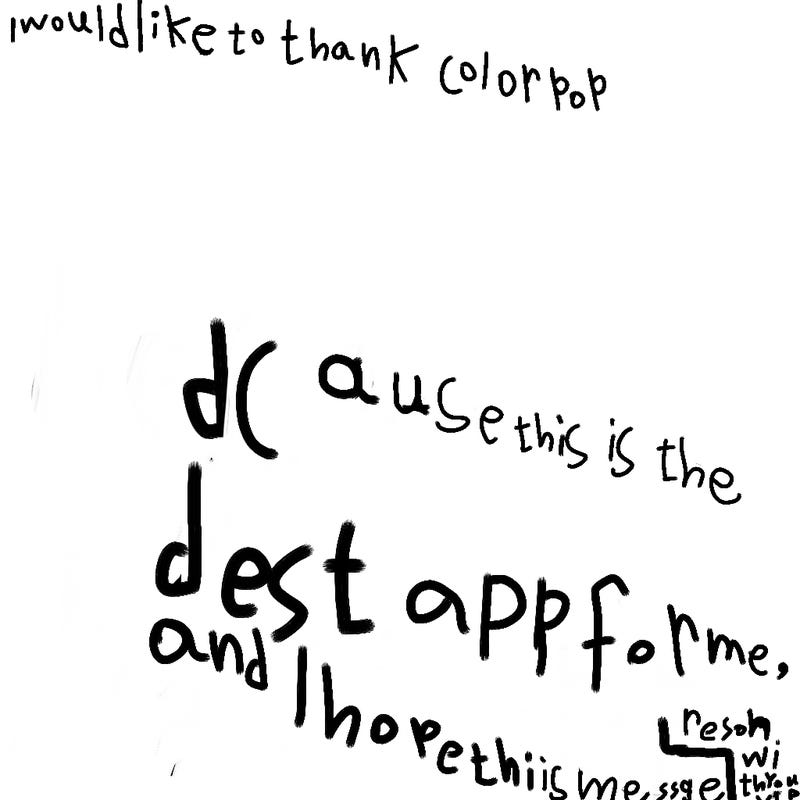 I would like to thank colorpop
dc ause this is the
dest app for me,
and I hope thiis messsge
resoh
wi
th you